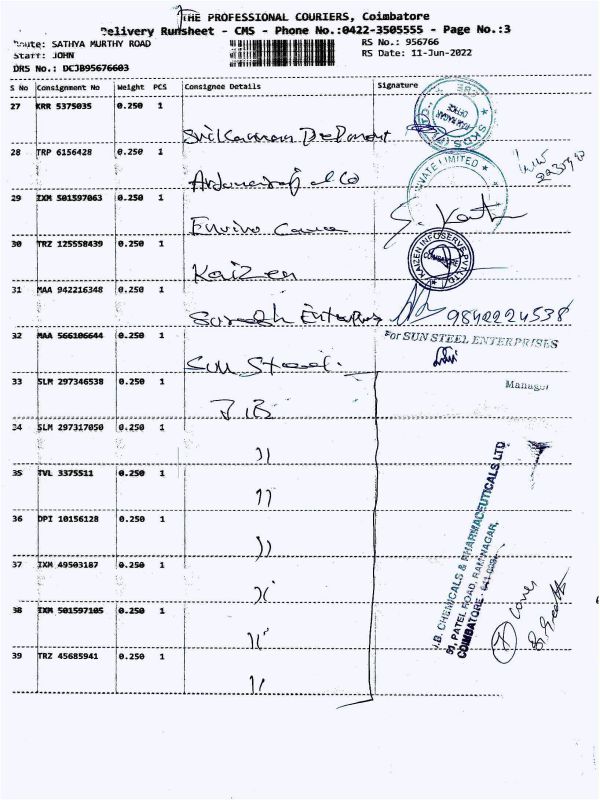 THE PROFESSIONAL COURIERS, Coimbatore
Delivery Runsheet - CMS - Phone No.:0422-3505555 - Page No.:3
Route: SATHYA MURTHY ROAD RS No.: 956766
Staff: JOHN RS Date: 11-Jun-2022
DRS No.: DCJB95676603
S No Consignment No Weight PCS Consignee Details Signature
27 KRR 5375035 0.250 1
28 TRP 6156428 0.250 1
PRIVATE LIMITED
29 IXM 501597063 0.250 1
Enviro Care
30 TRZ 125558439 0.250 1
Kaizen
KAIZEN INFOSERVE PVT LTD
COIMBATORE
31 MAA 942216348 0.250 1
Suresh Enterprises 9842224538
32 MAA 566106644 0.250 1
For SUN STEEL ENTERPRISES
Sun Steel.
Manager
33 SLM 297346538 0.250 1
J.B
34 SLM 297317050 0.250 1
"
35 TVL 3375511 0.250 1
"
36 DPI 10156128 0.250 1
"
37 IXM 49503187 0.250 1
"
38 IXM 501597105 0.250 1
"
39 TRZ 45685941 0.250 1
"
J.B. CHEMICALS & PHARMACEUTICALS LTD
51, PATEL ROAD, RAM NAGAR,
COIMBATORE - 641 009.
7 Cover